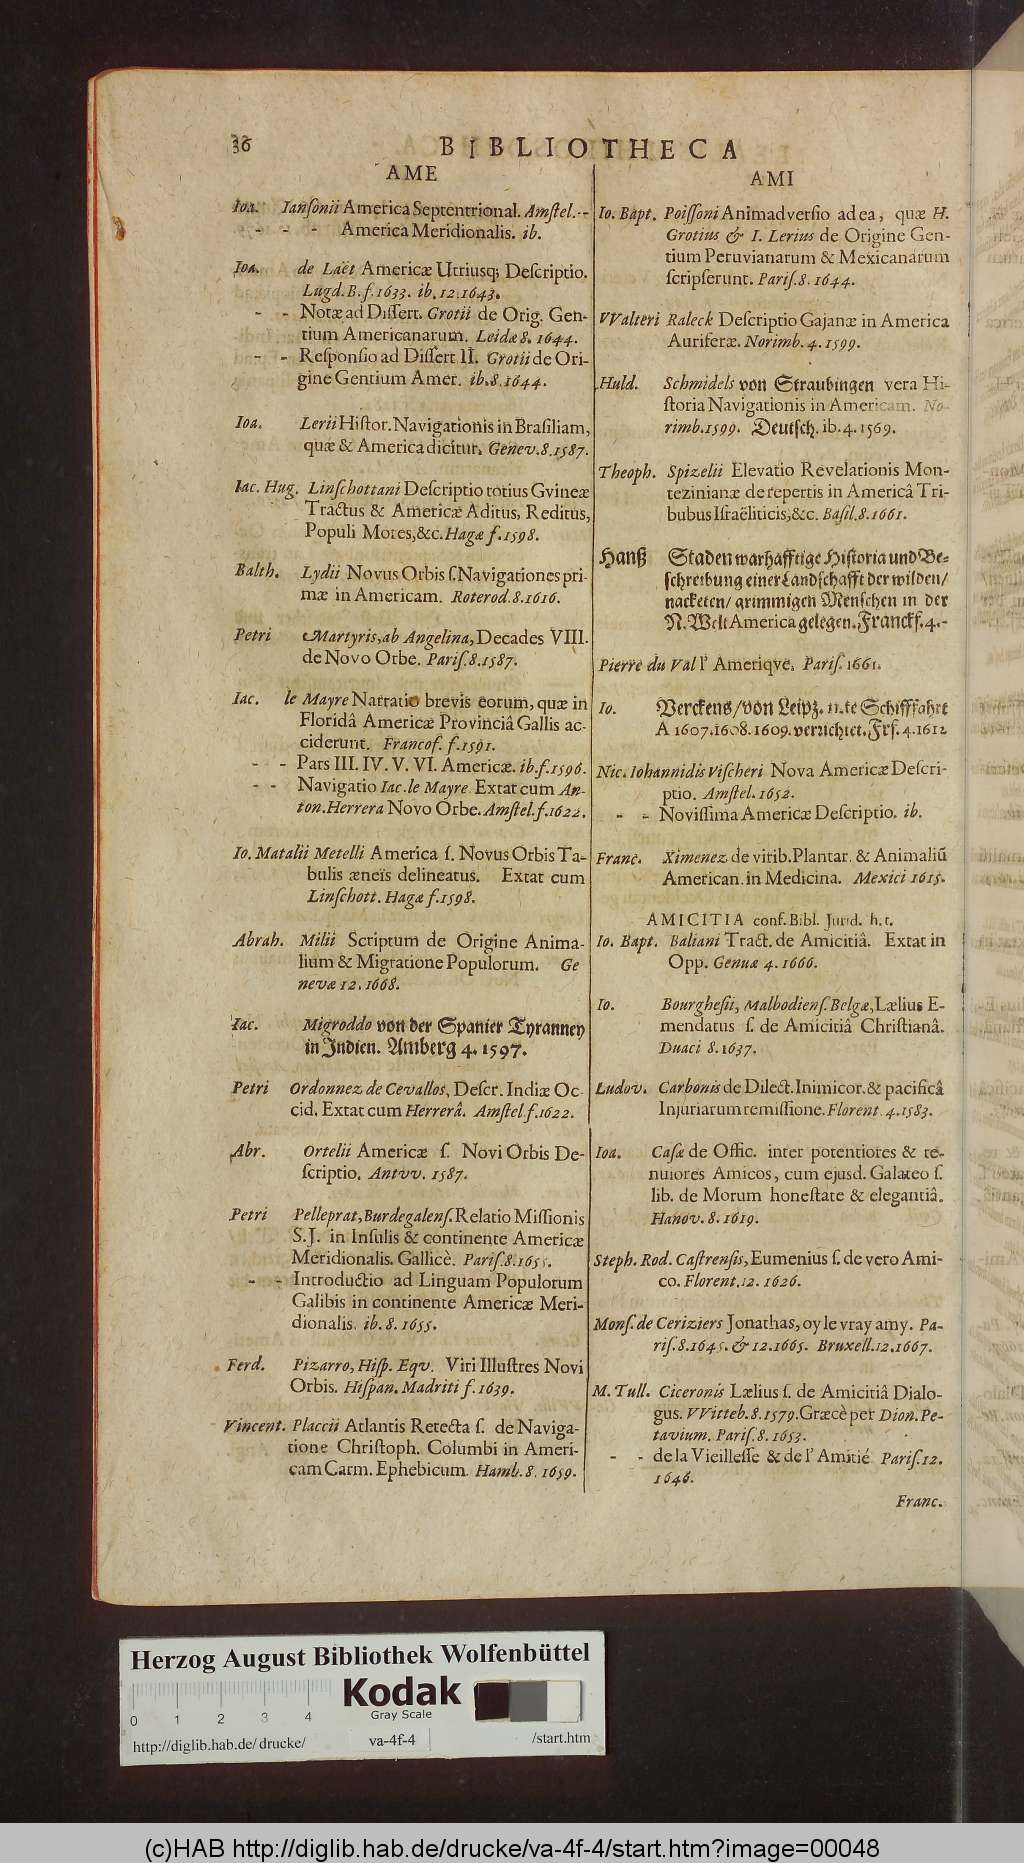 36
BIBLIOTHECA
AME
Ioa. Ianſonii America Septentrional. Amſtel. --
- - - America Meridionalis. ib.
Ioa. de Laët Americæ Utriusq; Deſcriptio.
Lugd. B. f. 1633. ib. 12. 1643.
- - Notæ ad Diſſert. Grotii de Orig. Gen-
tium Americanarum. Leidæ 8. 1644.
- - Reſponſio ad Diſſert II. Grotii de Ori-
gine Gentium Amer. ib. 8. 1644.
Ioa. Lerii Hiſtor. Navigationis in Braſiliam,
quæ & America dicitur. Genev. 8. 1587.
Iac. Hug. Linſchottani Deſcriptio totius Gvineæ
Tractus & Americæ Aditus, Reditus,
Populi Mores, &c. Hagæ f. 1598.
Balth. Lydii Novus Orbis ſ. Navigationes pri-
mæ in Americam. Roterod. 8. 1616.
Petri Martyris, ab Angelina, Decades VIII.
de Novo Orbe. Pariſ. 8. 1587.
Iac. le Mayre Narratio brevis eorum, quæ in
Floridâ Americæ Provinciâ Gallis ac-
ciderunt. Francof. f. 1591.
- - Pars III. IV. V. VI. Americæ. ib. f. 1596.
- - Navigatio Iac. le Mayre Extat cum An-
ton. Herrera Novo Orbe. Amſtel. f. 1622.
Io. Matalii Metelli America ſ. Novus Orbis Ta-
bulis æneïs delineatus. Extat cum
Linſchott. Hagæ f. 1598.
Abrah. Milii Scriptum de Origine Anima-
lium & Migratione Populorum. Ge
nevæ 12. 1668.
Iac. Migroddo von der Spanier Tyranney
in Indien. Amberg 4. 1597.
Petri Ordonnez de Cevallos, Deſcr. Indiæ Oc-
cid. Extat cum Herrerâ. Amſtel. f. 1622.
Abr. Ortelii Americæ ſ. Novi Orbis De-
ſcriptio. Antvv. 1587.
Petri Pelleprat, Burdegalenſ. Relatio Miſſionis
S. J. in Inſulis & continente Americæ
Meridionalis. Gallicè. Pariſ. 8. 1655.
- - Introductio ad Linguam Populorum
Galibis in continente Americæ Meri-
dionalis. ib. 8. 1655.
Ferd. Pizarro, Hiſp. Eqv. Viri Illuſtres Novi
Orbis. Hiſpan. Madriti f. 1639.
Vincent. Placcii Atlantis Retecta ſ. de Naviga-
tione Chriſtoph. Columbi in Ameri-
cam Carm. Ephebicum. Hamb. 8. 1659.
AMI
Io. Bapt. Poiſſoni Animadverſio ad ea, quæ H.
Grotius & I. Lerius de Origine Gen-
tium Peruvianarum & Mexicanarum
ſcripſerunt. Pariſ. 8. 1644.
VValteri Raleck Deſcriptio Gajanæ in America
Auriferæ. Norimb. 4. 1599.
Huld. Schmidels von Straubingen vera Hi-
ſtoria Navigationis in Americam. No-
rimb. 1599. Deutſch. ib. 4. 1569.
Theoph. Spizelii Elevatio Revelationis Mon-
tezinianæ de repertis in Americâ Tri-
bubus Iſraëliticis, &c. Baſil. 8. 1661.
Hanß Staden warhafftige Hiſtoria und Be-
ſchreibung einer Landſchafft der wilden/
nacketen/ grimmigen Menſchen in der
N. Welt America gelegen. Franckf. 4. -
Pierre du Val l' Ameriqve. Pariſ. 1661.
Io. Verckens/ von Leipz. 11. te Schifffahrt
A 1607. 1608. 1609. verrichtet. Frf. 4. 1612
Nic. Iohannidis Viſcheri Nova Americæ Deſcri-
ptio. Amſtel. 1652.
- - Noviſſima Americæ Deſcriptio. ib.
Franc. Ximenez de virib. Plantar. & Animaliũ
American. in Medicina. Mexici 1615.
AMICITIA conf. Bibl. Jurid. h. t.
Io. Bapt. Baliani Tract. de Amicitiâ. Extat in
Opp. Genuæ 4. 1666.
Io. Bourgheſii, Malbodienſ. Belgæ, Lælius E-
mendatus ſ. de Amicitiâ Chriſtianâ.
Duaci 8. 1637.
Ludov. Carbonis de Dilect. Inimicor. & pacificâ
Injuriarum remiſſione. Florent. 4. 1583.
Ioa. Caſæ de Offic. inter potentiores & te-
nuiores Amicos, cum ejusd. Galateo ſ.
lib. de Morum honeſtate & elegantiâ.
Hanov. 8. 1619.
Steph. Rod. Caſtrenſis, Eumenius ſ. de vero Ami-
co. Florent. 12. 1626.
Monſ. de Ceriziers Jonathas, oy le vray amy. Pa-
riſ. 8. 1645. & 12. 1665. Bruxell. 12. 1667.
M. Tull. Ciceronis Lælius ſ. de Amicitiâ Dialo-
gus. VVitteb. 8. 1579. Græcè per Dion. Pe-
tavium. Pariſ. 8. 1653.
- - de la Vieilleſſe & de l' Amitié Pariſ. 12.
1646.
Franc.
Herzog August Bibliothek Wolfenbüttel
Kodak
Gray Scale
0 1 2 3 4
http://diglib.hab.de/drucke/ va-4f-4 /start.htm
(c)HAB http://diglib.hab.de/drucke/va-4f-4/start.htm?image=00048